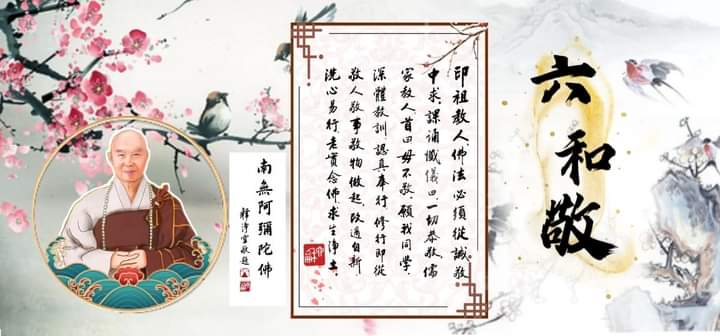 六和敬
印祖教人佛法必須從誠敬
中求課誦懺儀曰一切恭敬儒
家教人首曰毋不敬願我同學
深體教訓認真奉行修行即從
敬人敬事敬物做起改過自新
洗心易行老實念佛求生淨土
南無阿彌陀佛
釋淨空敬題